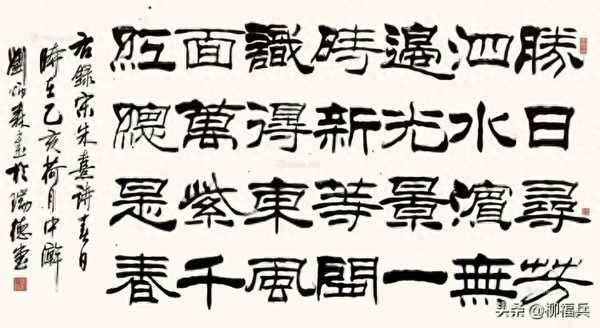 勝日尋芳
泗水濱無
邊光景一
時新等閒
識得東風
面萬紫千
紅總是春
右錄宋朱熹詩春日
時在乙亥荷月中澣
劉炳森書於瑞德堂
头条 @柳福兵